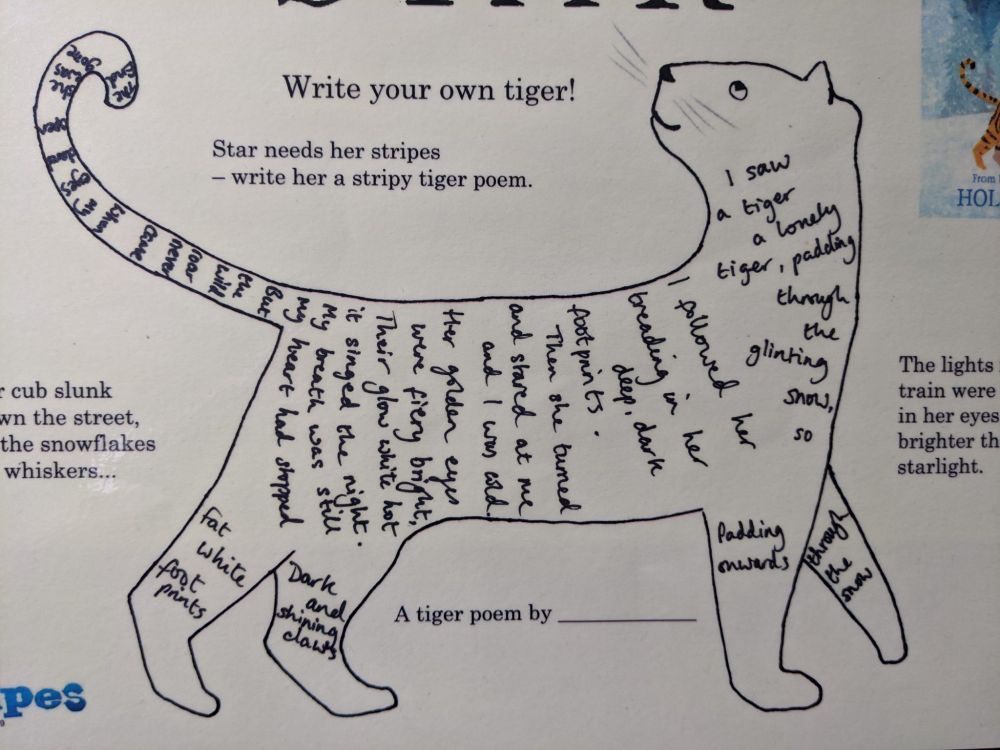 Write your own tiger!
Star needs her stripes
– write her a stripy tiger poem.
I saw
a tiger
a lonely
tiger, padding
through
the
glinting
snow,
so
I followed her
treading in her
deep, dark
footprints.
Then she turned
and stared at me
and I was cold.
Her golden eyes
were fiery bright,
Their glow white hot
it singed the night.
My breath was still
My heart had stopped
But
the
wild
roar
never
came
When
my
eyes
dared
open
she
was
gone
The
End
Fat
white
foot
prints
Dark
and
shining
claws
Padding
onwards
through
the
snow
A tiger poem by
cub slunk
the street,
the snowflakes
whiskers...
The lights
train were
in her eyes
brighter
starlight.
From
HOL
pes